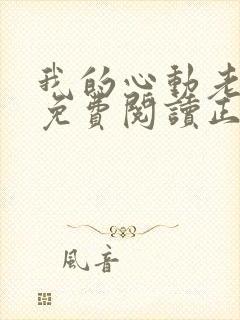 我的心動老
免費閱讀正
風音